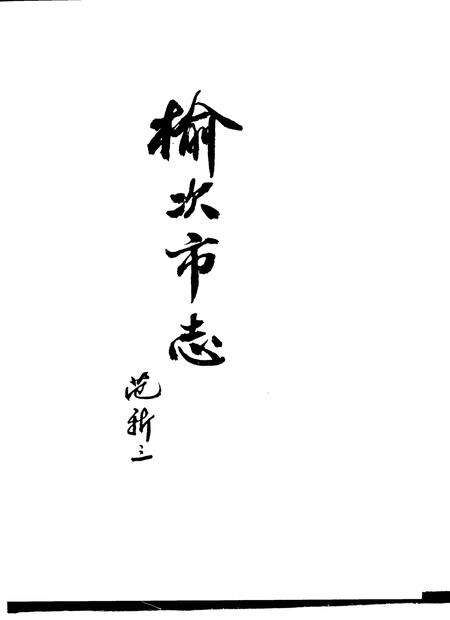 榆次市志
范新三